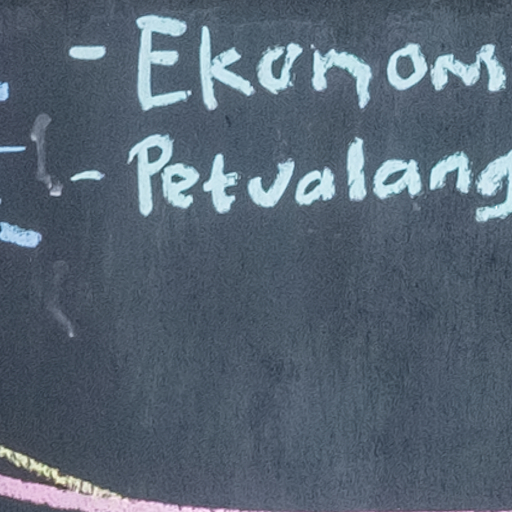 - Ekonom
- Petualang